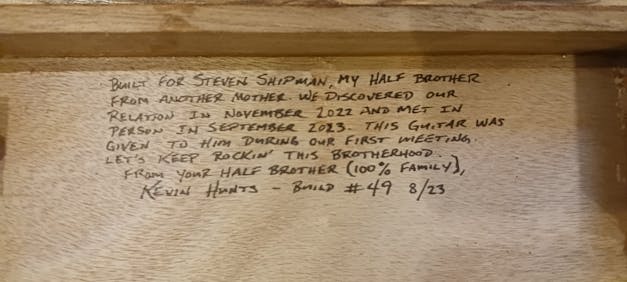 BUILT FOR STEVEN SHIPMAN, MY HALF BROTHER
FROM ANOTHER MOTHER. WE DISCOVERED OUR
RELATION IN NOVEMBER 2022 AND MET IN
PERSON IN SEPTEMBER 2023. THIS GUITAR WAS
GIVEN TO HIM DURING OUR FIRST MEETING.
LET'S KEEP ROCKIN' THIS BROTHERHOOD.
FROM YOUR HALF BROTHER (100% FAMILY),
KEVIN HUNTS - BUILD #49 8/23